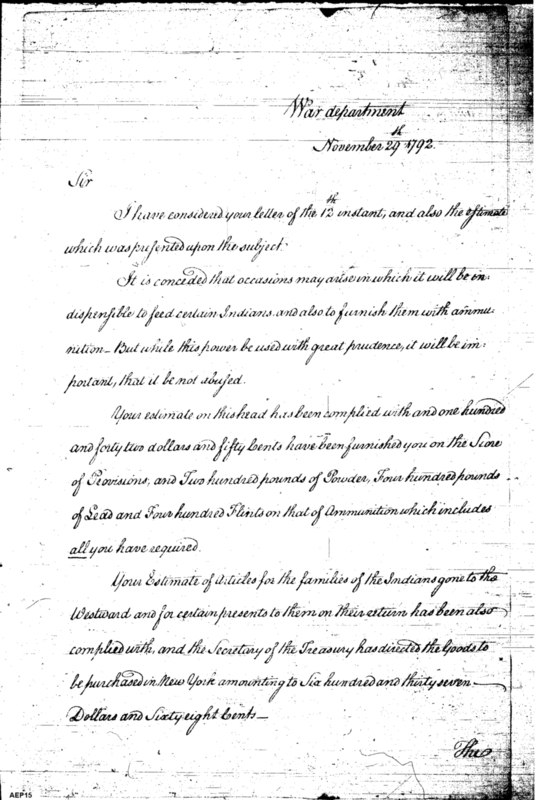 War department
November 29th 1792.
Sir
I have considered your letter of the 12th instant, and also the estimate
which was presented upon the subject.
It is conceded that occasions may arise in which it will be in-
dispensible to feed certain Indians, and also to furnish them with ammu-
nition_ But while this power be used with great prudence, it will be im-
portant, that it be not abused.
Your estimate on this head has been complied with and one hundred
and forty two dollars and fifty Cents have been furnished you on the Score
of Provisions, and Two hundred pounds of Powder, Four hundred pounds
of Lead and Four hundred Flints on that of Ammunition which includes
all you have required.
Your Estimate of Articles for the families of the Indians gone to the
Westward and for certain presents to them on their return has been also
complied with, and the Secretary of the Treasury has directed the Goods to
be purchased in New York amounting to Six hundred and thirty seven
Dollars and Sixty eight Cents_
The
AEP15